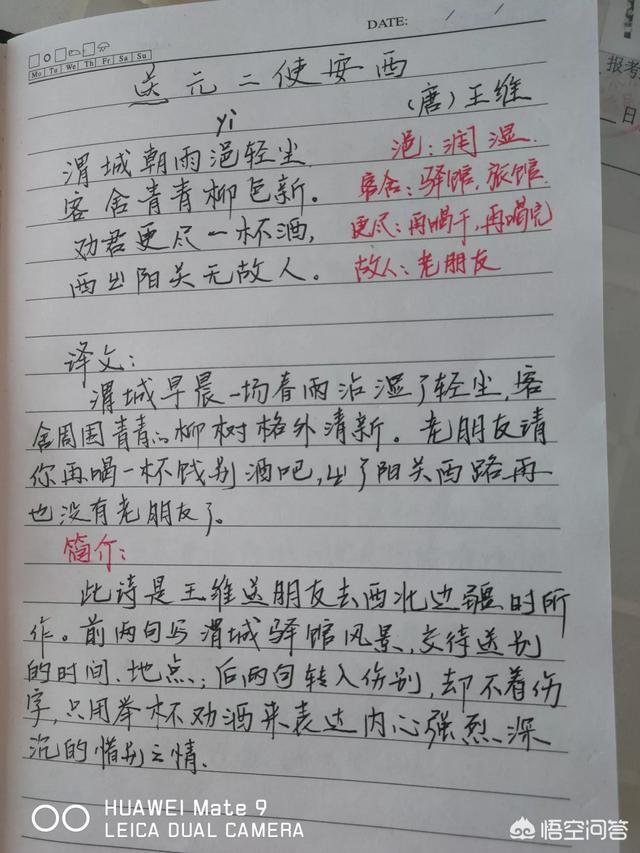 DATE: / /
Mo Tu We Th Fr Sa Su
送元二使安西
(唐)王维
yi
渭城朝雨浥轻尘 浥:润湿.
客舍青青柳色新。 客舍:驿馆,旅馆.
劝君更尽一杯酒, 更尽:再喝干,再喝完
西出阳关无故人。 故人:老朋友
译文:
渭城早晨一场春雨沾湿了轻尘,客
舍周围青青的柳树格外清新。老朋友请
你再喝一杯饯别酒吧,出了阳关西路再
也没有老朋友了。
简介:
此诗是王维送朋友去西北边疆时所
作。前两句写渭城驿馆风景,交待送别
的时间、地点;后两句转入伤别,却不着伤
字,只用举杯劝酒来表达内心强烈、深
沉的惜别之情.
报考
日
HUAWEI Mate 9
LEICA DUAL CAMERA
悟空问答